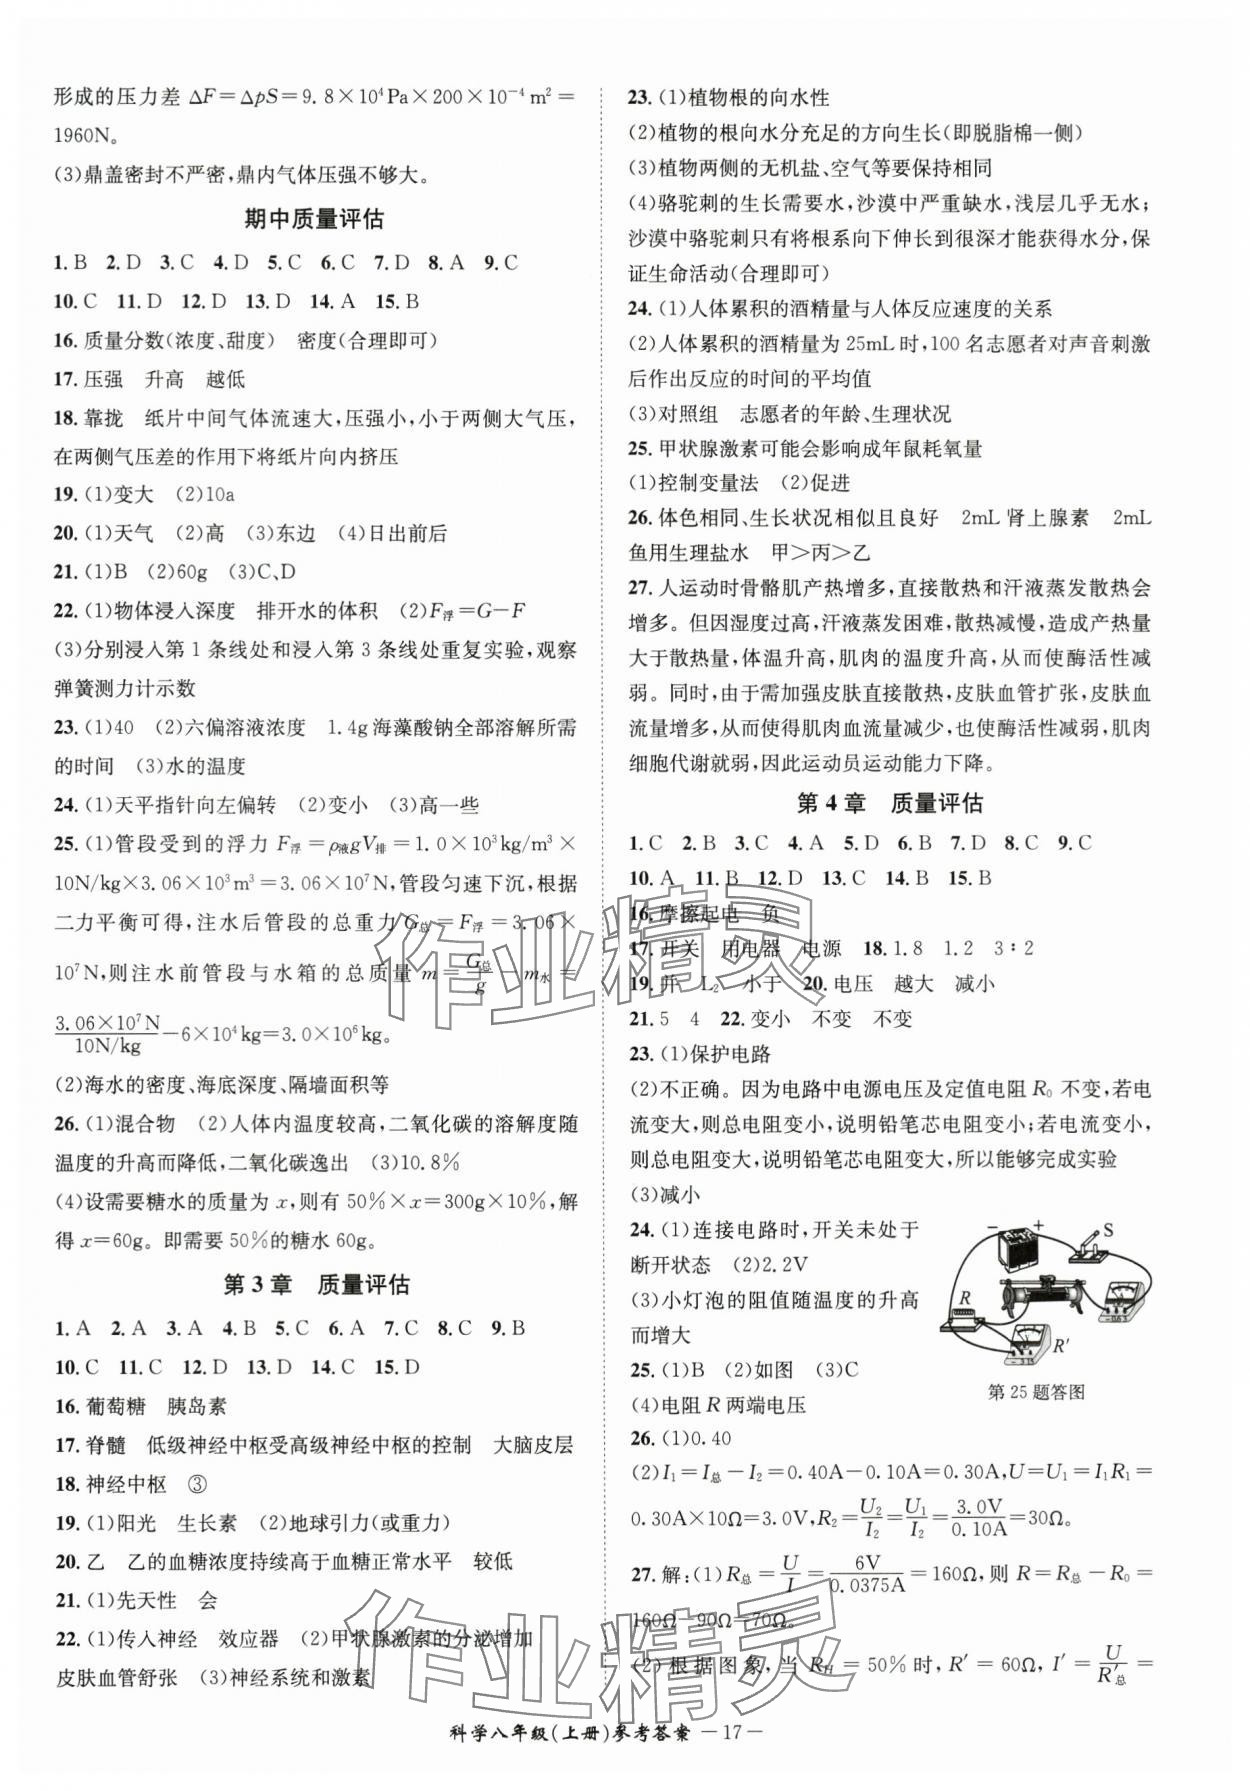 形成的压力差 ΔF＝ΔpS＝9.8×10⁴Pa×200×10⁻⁴m²＝
1960N。
(3)鼎盖密封不严密,鼎内气体压强不够大。
期中质量评估
1.B 2.D 3.C 4.D 5.C 6.C 7.D 8.A 9.C
10.C 11.D 12.D 13.D 14.A 15.B
16.质量分数(浓度、甜度) 密度(合理即可)
17.压强 升高 越低
18.靠拢 纸片中间气体流速大,压强小,小于两侧大气压,
在两侧气压差的作用下将纸片向内挤压
19.(1)变大 (2)10a
20.(1)天气 (2)高 (3)东边 (4)日出前后
21.(1)B (2)60g (3)C、D
22.(1)物体浸入深度 排开水的体积 (2)F浮＝G－F
(3)分别浸入第1条线处和浸入第3条线处重复实验,观察
弹簧测力计示数
23.(1)40 (2)六偏溶液浓度 1.4g海藻酸钠全部溶解所需
的时间 (3)水的温度
24.(1)天平指针向左偏转 (2)变小 (3)高一些
25.(1)管段受到的浮力F浮＝ρ液gV排＝1.0×10³kg/m³×
10N/kg×3.06×10³m³＝3.06×10⁷N,管段匀速下沉,根据
二力平衡可得,注水后管段的总重力G总＝F浮＝3.06×
10⁷N,则注水前管段与水箱的总质量 m＝G总/g－m水＝
3.06×10⁷N/10N/kg－6×10⁴kg＝3.0×10⁶kg。
(2)海水的密度、海底深度、隔墙面积等
26.(1)混合物 (2)人体内温度较高,二氧化碳的溶解度随
温度的升高而降低,二氧化碳逸出 (3)10.8%
(4)设需要糖水的质量为x,则有50%×x＝300g×10%,解
得x＝60g。即需要50%的糖水60g。
第3章 质量评估
1.A 2.A 3.A 4.B 5.C 6.A 7.C 8.C 9.B
10.C 11.C 12.D 13.D 14.C 15.D
16.葡萄糖 胰岛素
17.脊髓 低级神经中枢受高级神经中枢的控制 大脑皮层
18.神经中枢 ③
19.(1)阳光 生长素 (2)地球引力(或重力)
20.乙 乙的血糖浓度持续高于血糖正常水平 较低
21.(1)先天性 会
22.(1)传入神经 效应器 (2)甲状腺激素的分泌增加
皮肤血管舒张 (3)神经系统和激素
23.(1)植物根的向水性
(2)植物的根向水分充足的方向生长(即脱脂棉一侧)
(3)植物两侧的无机盐、空气等要保持相同
(4)骆驼刺的生长需要水,沙漠中严重缺水,浅层几乎无水;
沙漠中骆驼刺只有将根系向下伸长到很深才能获得水分,保
证生命活动(合理即可)
24.(1)人体累积的酒精量与人体反应速度的关系
(2)人体累积的酒精量为25mL时,100名志愿者对声音刺激
后作出反应的时间的平均值
(3)对照组 志愿者的年龄、生理状况
25.甲状腺激素可能会影响成年鼠耗氧量
(1)控制变量法 (2)促进
26.体色相同、生长状况相似且良好 2mL肾上腺素 2mL
鱼用生理盐水 甲＞丙＞乙
27.人运动时骨骼肌产热增多,直接散热和汗液蒸发散热会
增多。但因湿度过高,汗液蒸发困难,散热减慢,造成产热量
大于散热量,体温升高,肌肉的温度升高,从而使酶活性减
弱。同时,由于需加强皮肤直接散热,皮肤血管扩张,皮肤血
流量增多,从而使得肌肉血流量减少,也使酶活性减弱,肌肉
细胞代谢就弱,因此运动员运动能力下降。
第4章 质量评估
1.C 2.B 3.C 4.A 5.D 6.B 7.D 8.C 9.C
10.A 11.B 12.D 13.C 14.B 15.B
16.摩擦起电 负
17.开关 用电器 电源 18.1.8 1.2 3∶2
19.并 L₂ 小于 20.电压 越大 减小
21.5 4 22.变小 不变 不变
23.(1)保护电路
(2)不正确。因为电路中电源电压及定值电阻R₀不变,若电
流变大,则总电阻变小,说明铅笔芯电阻变小;若电流变小,
则总电阻变大,说明铅笔芯电阻变大,所以能够完成实验
(3)减小
24.(1)连接电路时,开关未处于
断开状态 (2)2.2V
(3)小灯泡的阻值随温度的升高
而增大
25.(1)B (2)如图 (3)C
(4)电阻R两端电压
－ ＋ S
R
R′
第25题答图
26.(1)0.40
(2)I₁＝I总－I₂＝0.40A－0.10A＝0.30A,U＝U₁＝I₁R₁＝
0.30A×10Ω＝3.0V,R₂＝U₂/I₂＝U₁/I₂＝3.0V/0.10A＝30Ω。
27.解:(1)R总＝U/I＝6V/0.0375A＝160Ω,则R＝R总－R₀＝
160Ω－90Ω＝70Ω。
(2)根据图象,当RH＝50%时,R′＝60Ω,I′＝U/R′总
科学八年级(上册)参考答案 —17—
作业精灵
作业精灵